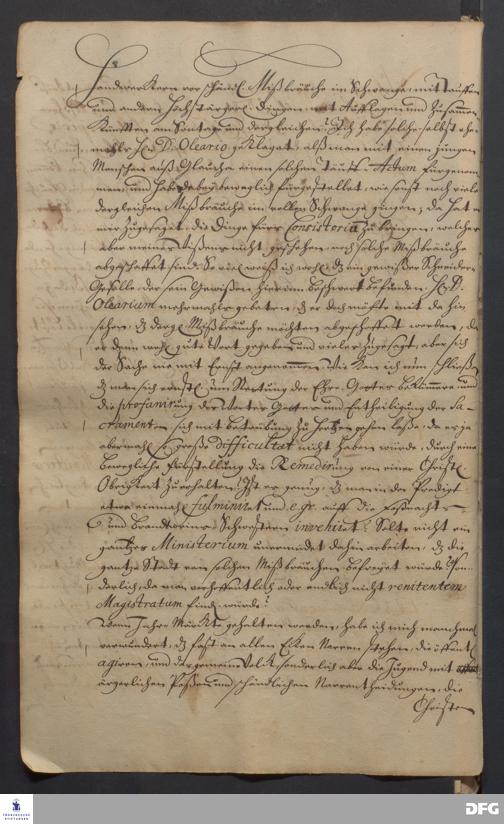 Handwerckern vor schändl. Mißbräuche im Schwange, mit tauffen
und andern höchstärgerl. Dingen, mit Aufflagen und Zusammen
Künfften am Sontage und dergleichen? Ich habe solches selbst ehe-
mahls H. D. Oleario geklaget, alß man mit einem jungen
Menschen auß Glaucha einen solchen Tauff-Actum fürgenom-
men, und habe dabey beweglich fürgestellet, wie sonst noch viele
dergleichen Mißbräuche im vollen Schwange gingen, da hat er
mir zugesaget, die Dinge fürs Consistorium zu bringen, welches
aber meines Wißens nicht geschehen, noch solche Mißbräuche
abgeschaffet sind. So viel weiß ich wohl, dz ein gewißer Schneider-
Geselle, der sein Gewißen hierinn beschwert befunden, H. D.
Olearium mehrmahls gebeten, dz er doch müste mit dahin
sehen, dz dergl. Mißbräuche möchten abgeschaffet werden, da
er denn wohl gute Wort gegeben und vieles zugesagt, aber sich
der Sache nie mit Ernst angenommen. Wie kan ich nun schließen
dz man sich ernstl. um Rettung der Ehre Gottes bekümmere und
die profanirung der Worte Gottes und Entheiligung der Sa-
cramenten sich mit betrübung zu Hertzen gehen laße, da er ja
abermahl so große difficultät nicht haben würde, durch eine
bewegliche Fürstellung die Remedirung von einer Christl.
Obrigkeit zu erhalten? Ist es genug, dz man in der Predigt
etwa einmahl fulminiret und e. gr. auff die Faßnachts-
und Brandtwein-Schwestern invehiret? Solte nicht ein
gantzes Ministerium unermüdet dahin arbeiten, dz die
gantze Stadt von solchen Mißbräuchen befreyet würde? son-
derlich, da man verhoffentlich oder endlich nicht renitentem
Magistratum finden würde?
Wenn Jahr-Märckte gehalten werden, habe ich mich manchmal
verwundert, dz fast an allen Ecken Narren stehen, die öffentl.
agiren, und das gemeine Volck, sonderlich aber die Jugend mit
ärgerlichen Poßen und schändlichen Narrentheidungen, die
Christen
FRANCKESCHE STIFTUNGEN
DFG